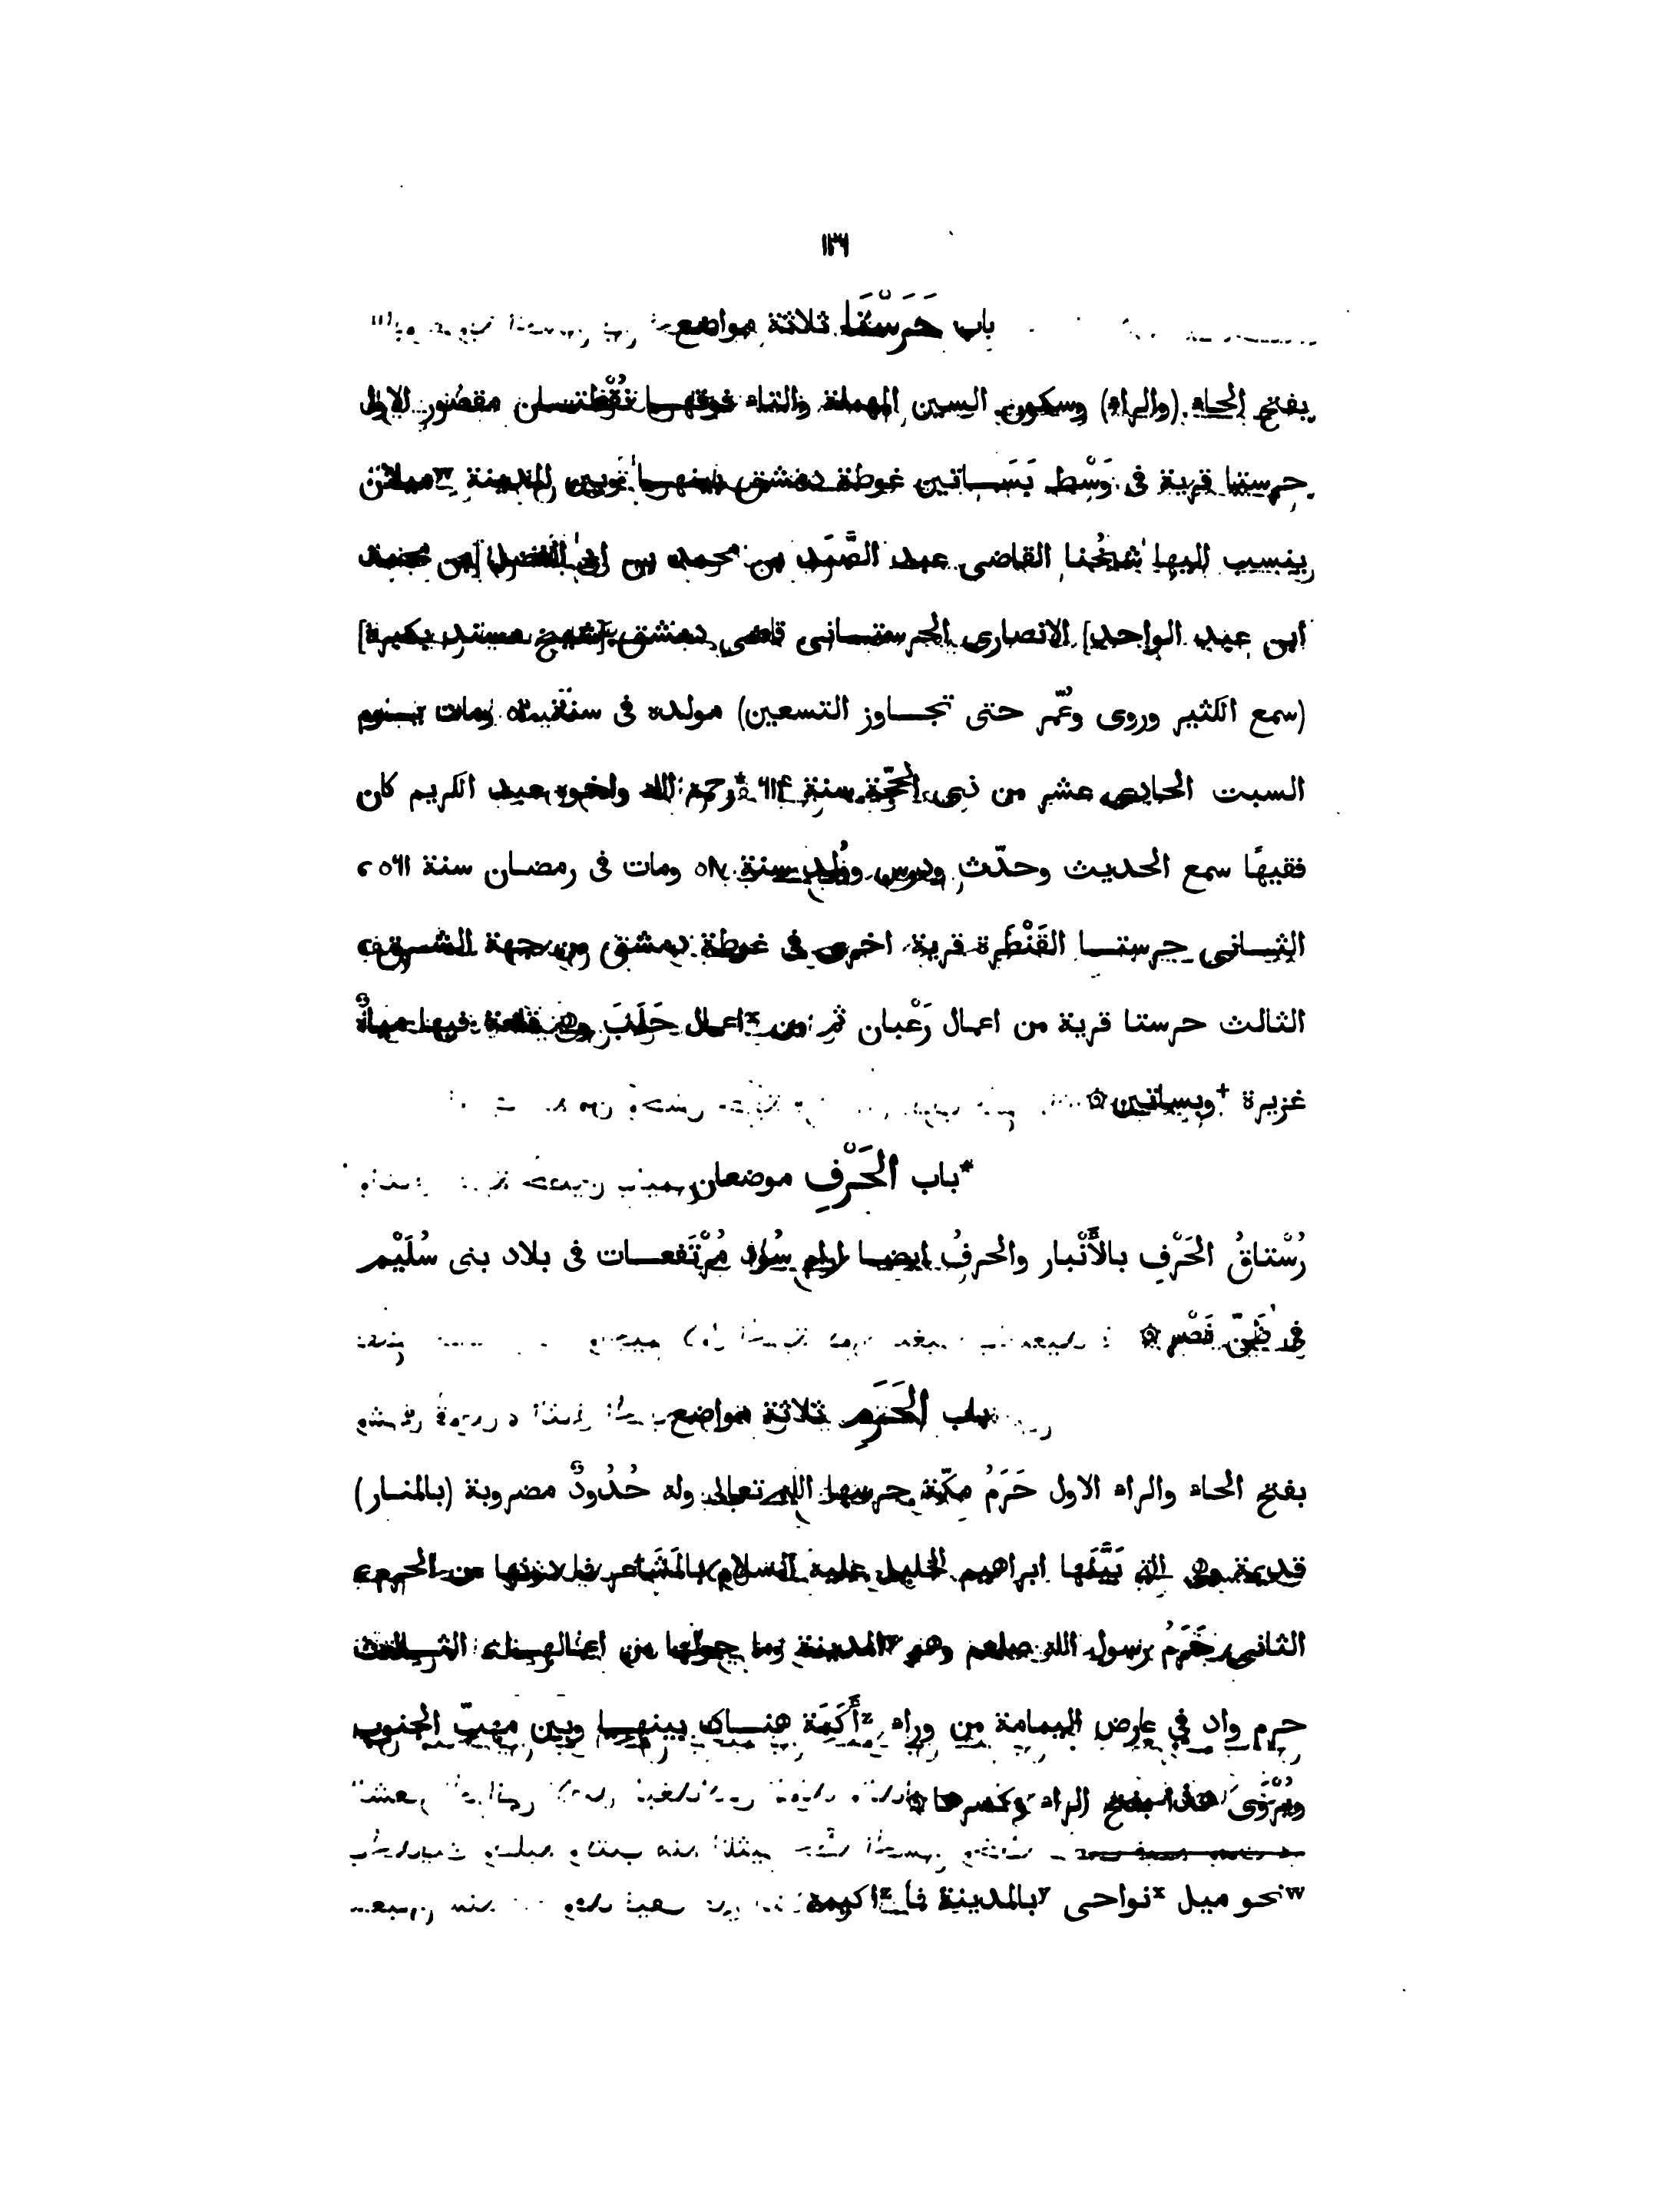 ١٣٦
باب حَرَسْتَا ثلاثة مواضع
بفتح الحاء (والراء) وسكون السين المهملة والتاء فوقها نقطتان مقصور الاول
حرستا قرية فى وَسْط بَسَاتين غوطة دمشق بينها وبين المدينة ʷميلان
ينسب اليها شيخُنا القاضى عبد الصَّمَد بن محمد بن ابى الفضل [بن محمد
ابن عبد الواحد] الانصارى الحرستانى قاضى دمشق [شيخ مسند بكير]
(سمع الكثير وروى وعُمّر حتى تجاوز التسعين) مولده فى سنة ومات يوم
السبت الحادى عشر من ذى الحجّة سنة ٦١٤ *رحمة الله واخوه عبد الكريم كان
فقيهًا سمع الحديث وحدّث ودرس ووُلد سنة ٥١٧ ومات فى رمضان سنة ٥٦١،
الثانى حرستا القَنْطَرة قرية اخرى فى غوطة دمشق من جهة الشرق،
الثالث حرستا قرية من اعمال رَعْبان ثم من ˣاعمال حَلَبَ وفى قلعة فيها مياهٌ
غزيرة +وبساتين ۞
*باب الحَرْفِ موضعان
رُسْتاقُ الحَرْفِ بالأَنْبار والحرفُ ايضا ارام سُود مُرْتَفعات فى بلاد بنى سُلَيْم
فى ۞
باب الحَرَمِ ثلاثة مواضع
بفتح الحاء والراء الاول حَرَمُ مكّة حرسها الله تعالى وله حُدُودٌ مضروبة (بالمنار)
قديمة وهى التى بَيَّنَها ابراهيم الخليل عليه السلام بالمَشَاعر فا دونها من الحرم،
الثانى حَرَمُ رسول الله صلعم وهو ʸالمدينة وما حولها من اعمالها، الثالث
حرم واد في عارض اليمامة من وراء ᶻأَكَمَة هناك بينها وبين مهبّ الجنوب
ويُرْوَى هذا بفتح الراء وكسرها ۞
ʷنحو ميل ˣنواحى ʸبالمدينة فا ᶻاكيمة